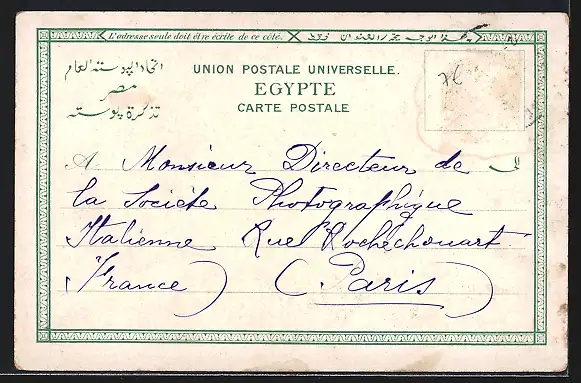 L'adresse seule doit être écrite de ce côté.
اتحاد البوسته العام
مصر
تذكرة بوسته
UNION POSTALE UNIVERSELLE.
EGYPTE
CARTE POSTALE
76
A Monsieur Directeur de
la Société Photographique
Italienne Rue Rochéchouart
(France) (Paris)